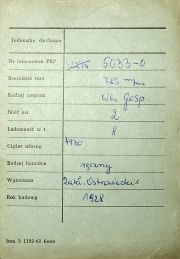 Jednostka służbowa
Nr inwentarza PKP 5033-0
Szerokość toru 785 mm
Rodzaj wagonu Wkr Gosp.
Ilość osi 2
Ładowność w t. 8
Ciężar własny 4430
Rodzaj hamulca ręczny
Wytwórnia Zakł. Ostrowieckie
Rok budowy 1928